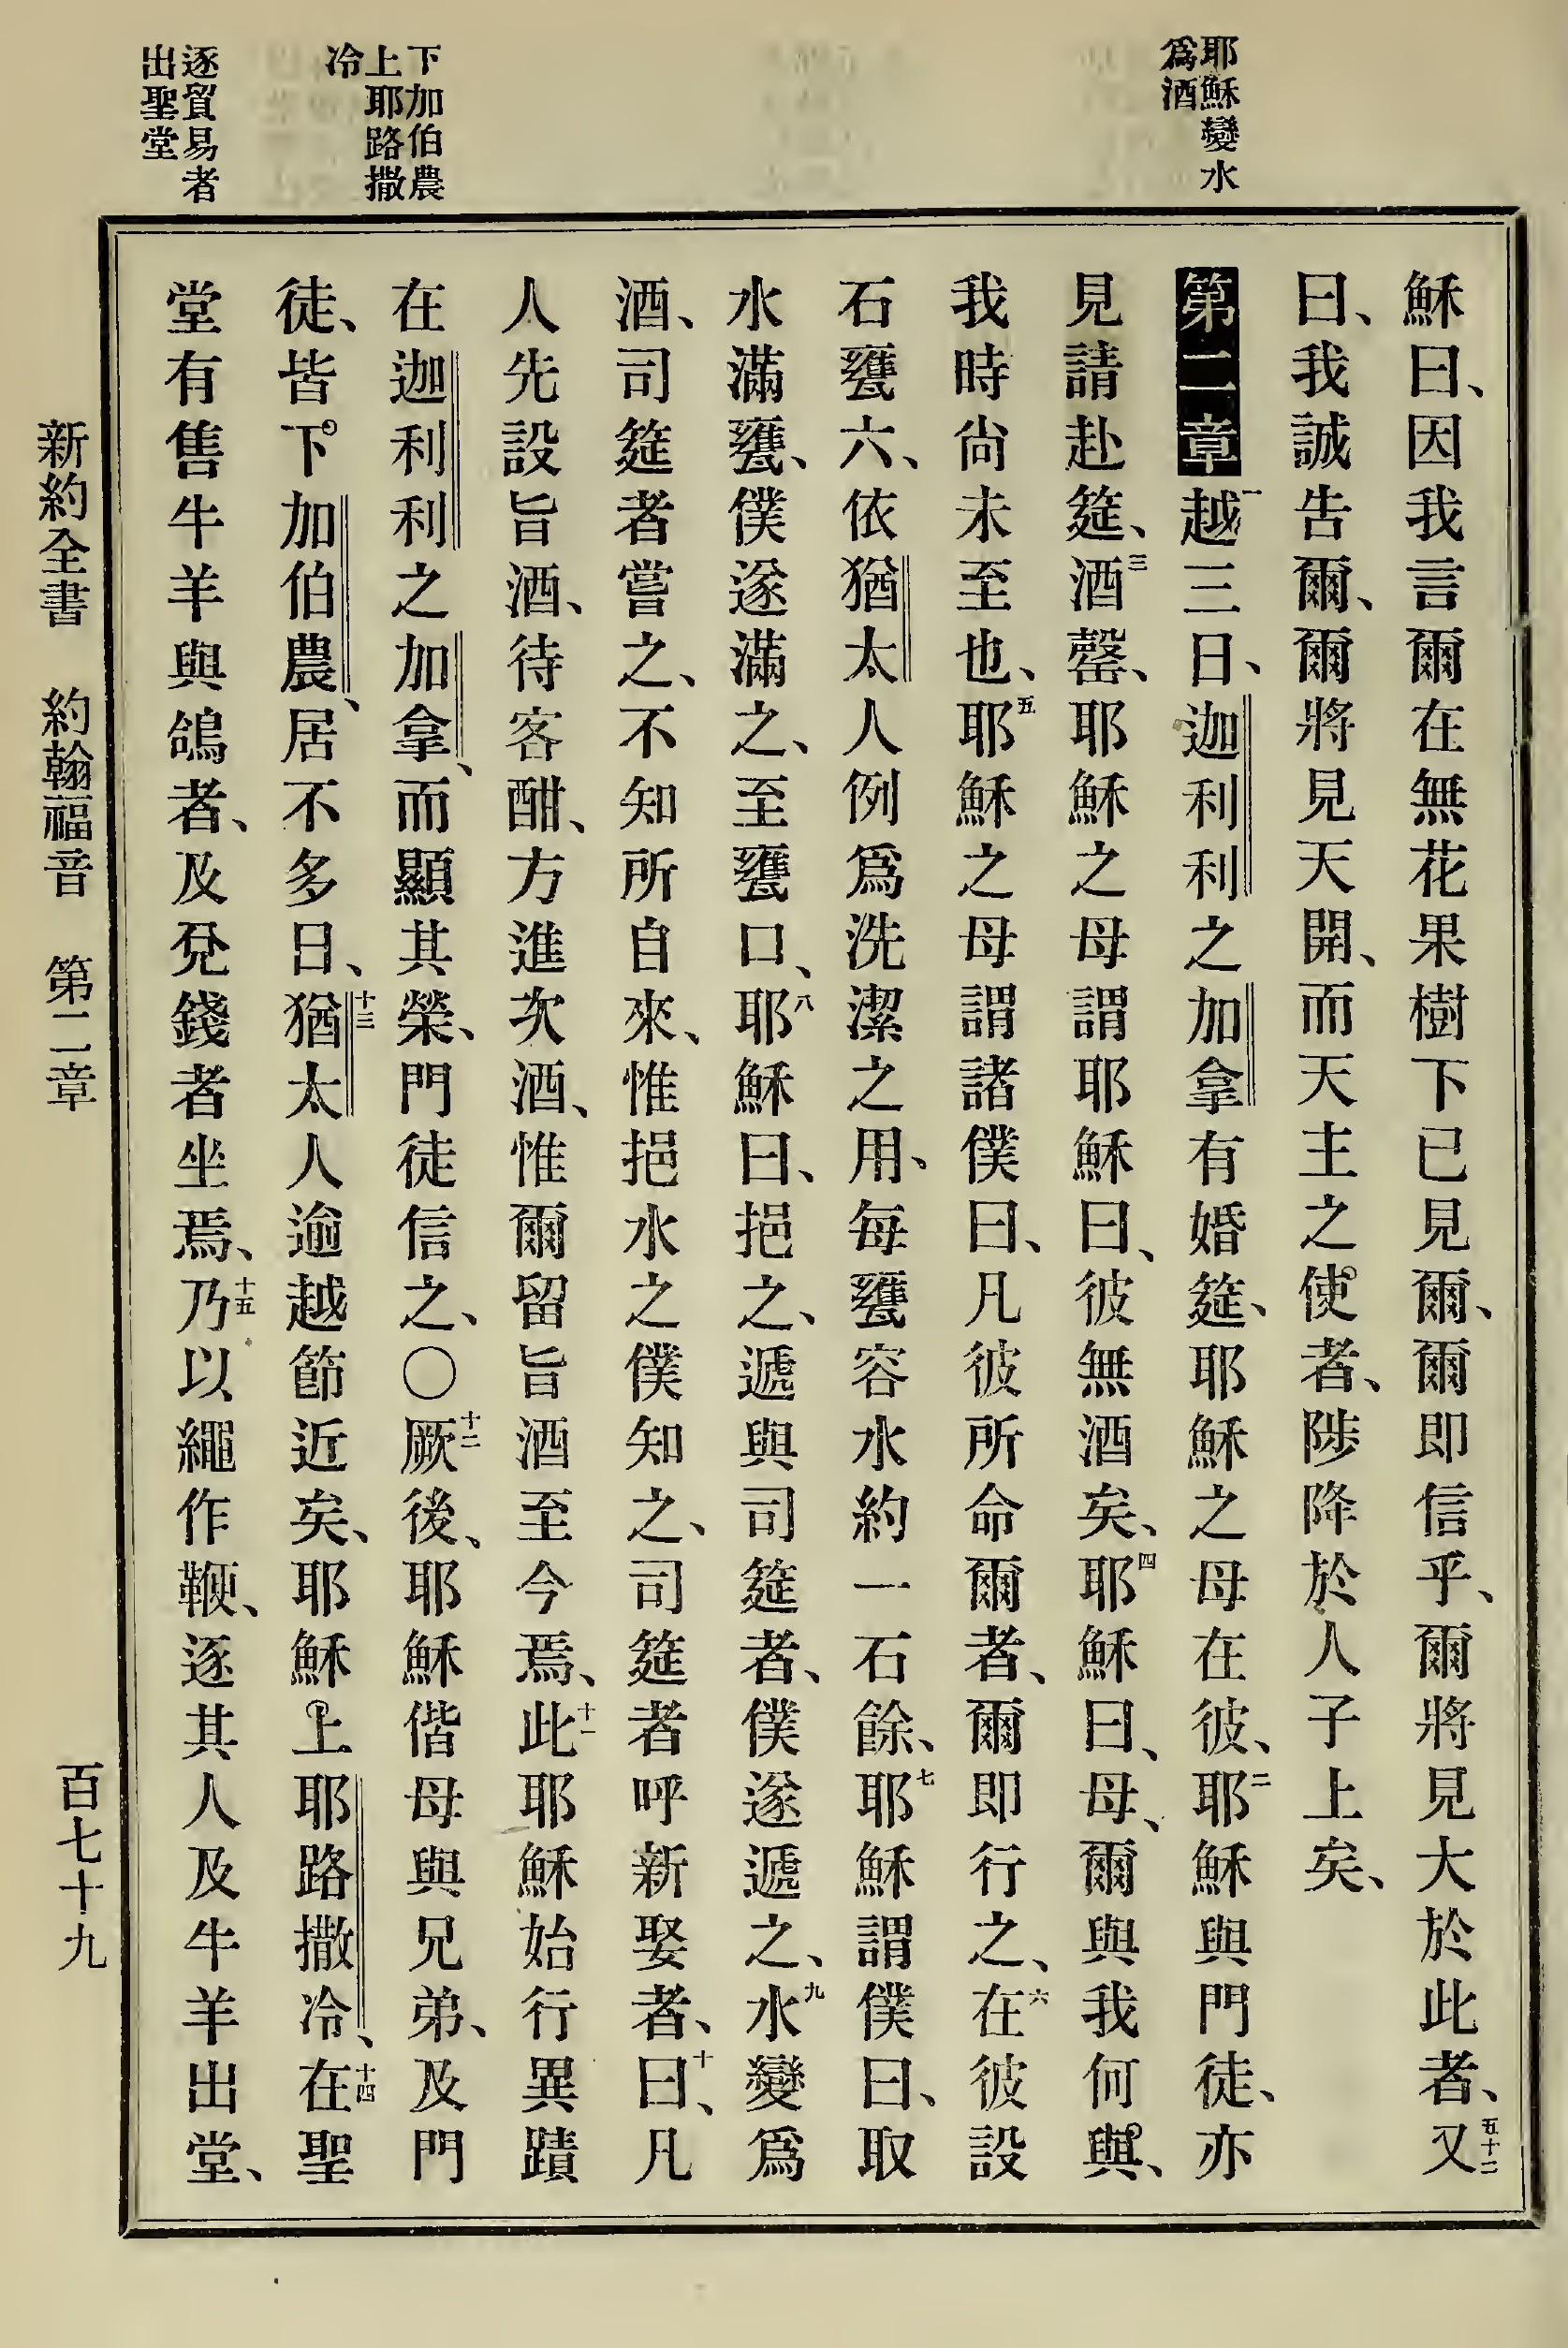 耶穌變水
爲酒
下加伯農
上耶路撒
冷
逐貿易者
出聖堂
穌曰、因我言爾在無花果樹下已見爾、爾即信乎、爾將見大於此者、五十二又
曰、我誠告爾、爾將見天開、而天主之使者、陟降於人子上矣、
第二章一越三日、迦利利之加拿有婚筵、耶穌之母在彼、二耶穌與門徒、亦
見請赴筵、三酒罄、耶穌之母謂耶穌曰、彼無酒矣、四耶穌曰、母、爾與我何與、
我時尙未至也、五耶穌之母謂諸僕曰、凡彼所命爾者、爾即行之、六在彼設
石甕六、依猶太人例爲洗潔之用、每甕容水約一石餘、七耶穌謂僕曰、取
水滿甕、僕遂滿之、至甕口、八耶穌曰、挹之、遞與司筵者、僕遂遞之、九水變爲
酒、司筵者嘗之、不知所自來、惟挹水之僕知之、司筵者呼新娶者、十曰、凡
人先設旨酒、待客酣、方進次酒、惟爾留旨酒至今焉、十一此耶穌始行異蹟
在迦利利之加拿、而顯其榮、門徒信之、〇十二厥後、耶穌偕母與兄弟、及門
徒、皆下加伯農、居不多日、十三猶太人逾越節近矣、耶穌上耶路撒冷、十四在聖
堂有售牛羊與鴿者、及兌錢者坐焉、十五乃以繩作鞭、逐其人及牛羊出堂、
新約全書 約翰福音 第二章 百七十九